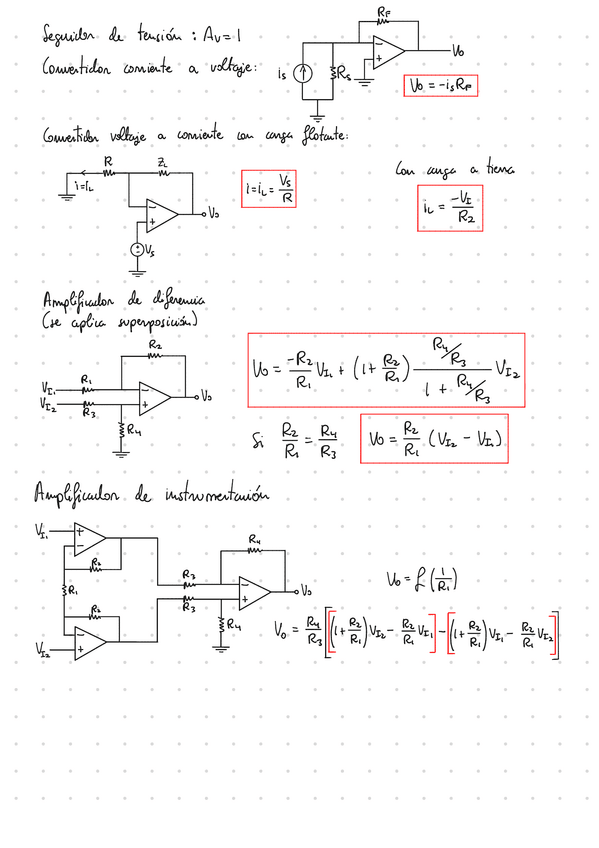 Seguidor de tensión : Av = 1
Convertidor corriente a voltaje:
RF
is
Rs
Vo
Vo = -is RF
Convertidor voltaje a corriente con carga flotante:
R
ZL
i=iL
Vo
Vs
i = iL = Vs/R
Con carga a tierra
iL = -VI/R2
Amplificador de diferencia
(se aplica superposición)
R2
VI1
R1
VI2
R3
Vo
R4
Vo = -R2/R1 VI1 + (1 + R2/R1) (R4/R3)/(1 + R4/R3) VI2
Si R2/R1 = R4/R3
Vo = R2/R1 (VI2 - VI1)
Amplificador de instrumentación
VI1
R2
R1
R2
VI2
R3
R3
R4
R4
Vo
Vo = f(1/R1)
Vo = R4/R3 [[(1 + R2/R1) VI2 - R2/R1 VI1] - [(1 + R2/R1) VI1 - R2/R1 VI2]]